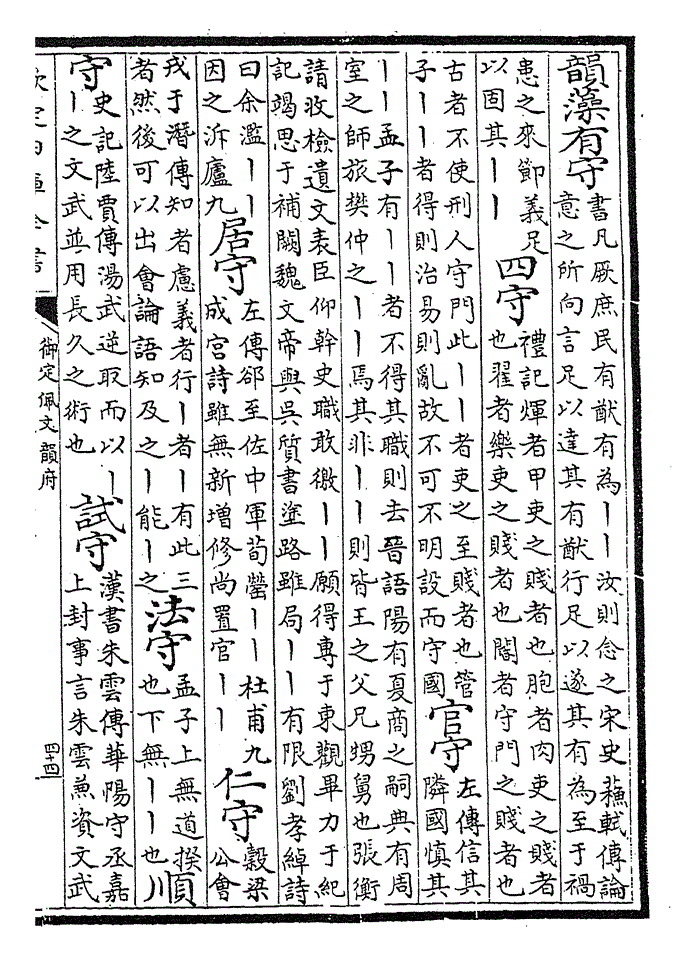 韻藻有守
書凡厥庶民有猷有為丨丨汝則念之宋史蘇軾傳論
意之所向言足以達其有猷行足以遂其有為至于禍
患之來節義足
以固其丨丨
四守
禮記煇者甲吏之賤者也胞者肉吏之賤者
也翟者樂吏之賤者也閽者守門之賤者也
古者不使刑人守門此丨丨者吏之至賤者也管
子丨丨者得則治易則亂故不可不明設而守國
官守
左傳信其
隣國慎其
丨丨孟子有丨丨者不得其職則去晉語陽有夏商之嗣典有周
室之師旅樊仲之丨丨焉其非丨丨則皆王之父兄甥舅也張衡
請收檢遺文表臣仰幹史職敢徼丨丨願得專于東觀畢力于紀
記竭思于補闕魏文帝與吳質書塗路雖局丨丨有限劉孝綽詩
曰余濫丨丨
因之泝廬九
居守
左傳郤至佐中軍荀罃丨丨杜甫九
成宮詩雖無新增修尚置官丨丨
仁守
穀梁
公會
戎于潛傳知者慮義者行丨者丨有此三
者然後可以出會論語知及之丨能丨之
法守
孟子上無道揆
也下無丨丨也
順
守
史記陸賈傳湯武逆取而以丨
丨之文武並用長久之術也
試守
漢書朱雲傳華陽守丞嘉
上封事言朱雲兼資文武
欽定四庫全書
御定佩文韻府
四十四